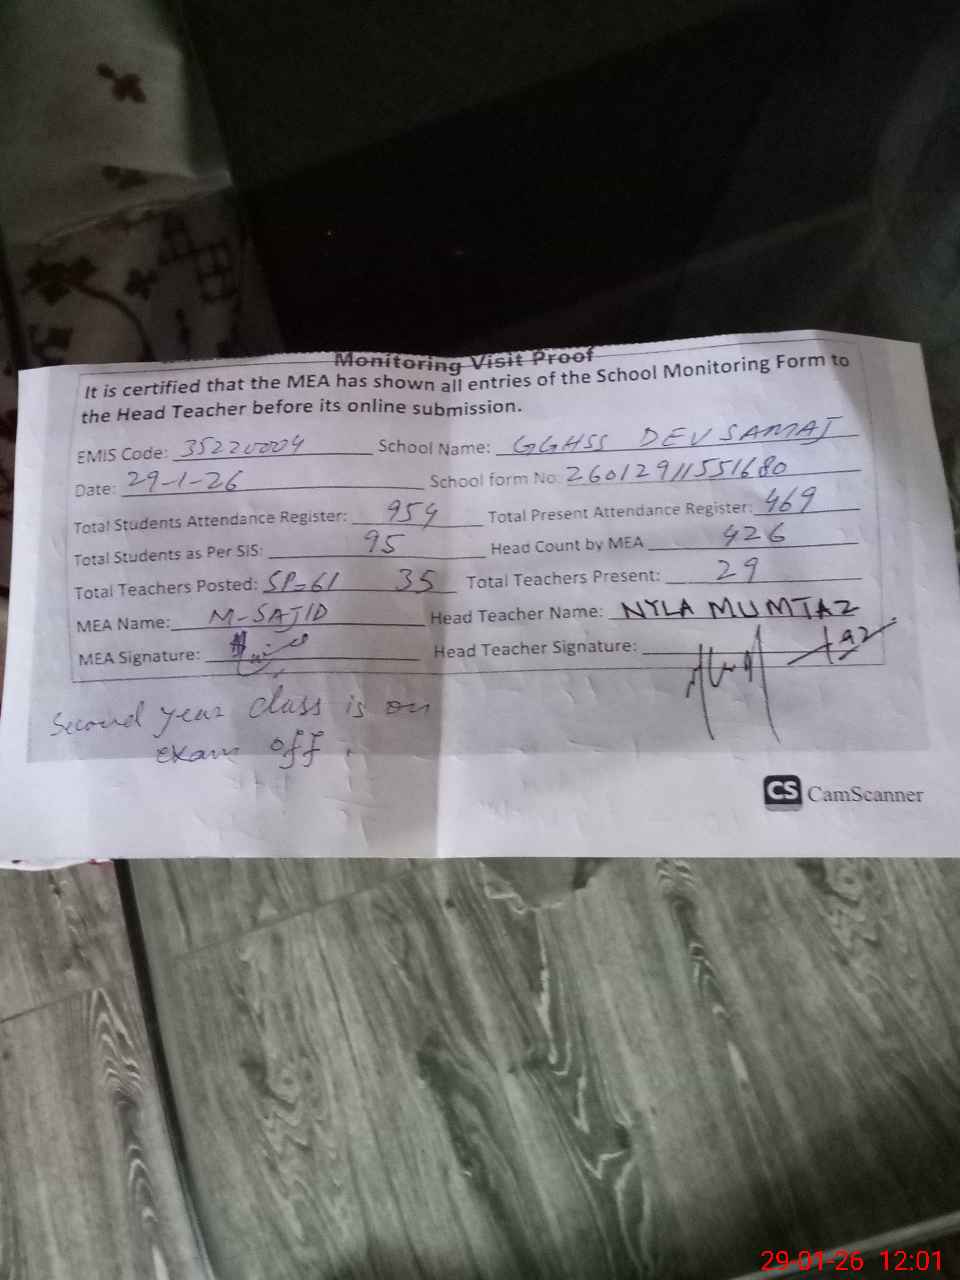 Monitoring Visit Proof
It is certified that the MEA has shown all entries of the School Monitoring Form to
the Head Teacher before its online submission.
EMIS Code: 35220009 School Name: GGHSS DEV SAMAJ
Date: 29-1-26 School form No: 26012911551680
Total Students Attendance Register: 954 Total Present Attendance Register: 469
Total Students as Per SiS: 95 Head Count by MEA 426
Total Teachers Posted: SP=61 35 Total Teachers Present: 29
MEA Name: M-SAJID Head Teacher Name: NYLA MUMTAZ
MEA Signature: Head Teacher Signature:
Second year class is on
exam off.
CS CamScanner
29-01-26 12:01